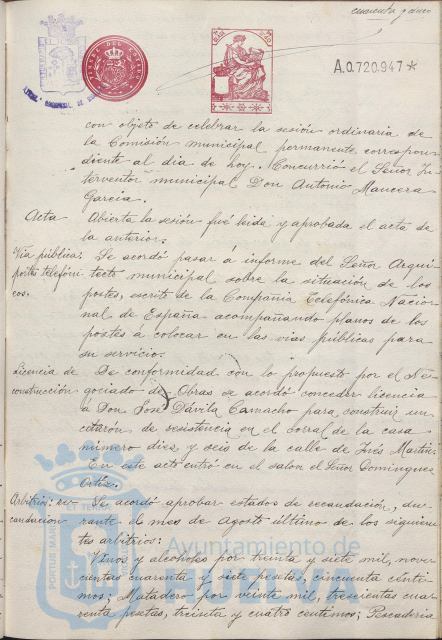 cuarenta y cinco
A.0.720.947*
con objeto de celebrar la sesión ordinaria de
la Comisión municipal permanente correspon-
diente al día de hoy. Concurrió el Señor In-
terventor municipal Don Antonio Mancera
García.
Acta Abierta la sesión fué leida y aprobada el acta de
la anterior.
Vía pública: Se acordó pasar á informe del Señor Arqui-
postes telefóni tecto municipal sobre la situación de los
cos. postes, escrito de la Compañía Telefónica Nacio-
nal de España acompañando planos de los
postes á colocar en las vías públicas para
su servicio.
Licencia de De conformidad con lo propuesto por el Ne-
construcción gociado de Obras se acordó conceder licencia
á Don José Dávila Camacho para construir un
citarón de resistencia en el corral de la casa
número diez y seis de la calle de Inés Martín.
En este acto entró en el salon el Señor Domínguez
Ortiz.
Arbitrios: re- Se acordó aprobar estados de recaudación, du-
caudación rante el mes de Agosto último de los siguien-
tes arbitrios:
Vinos y alcoholes por treinta y siete mil, nove-
cientas cuarenta y siete pesetas, cincuenta cénti-
mos; Matadero por veinte mil, trescientas cua-
renta pesetas, treinta y cuatro centimos; Pescadería
Ayuntamiento de